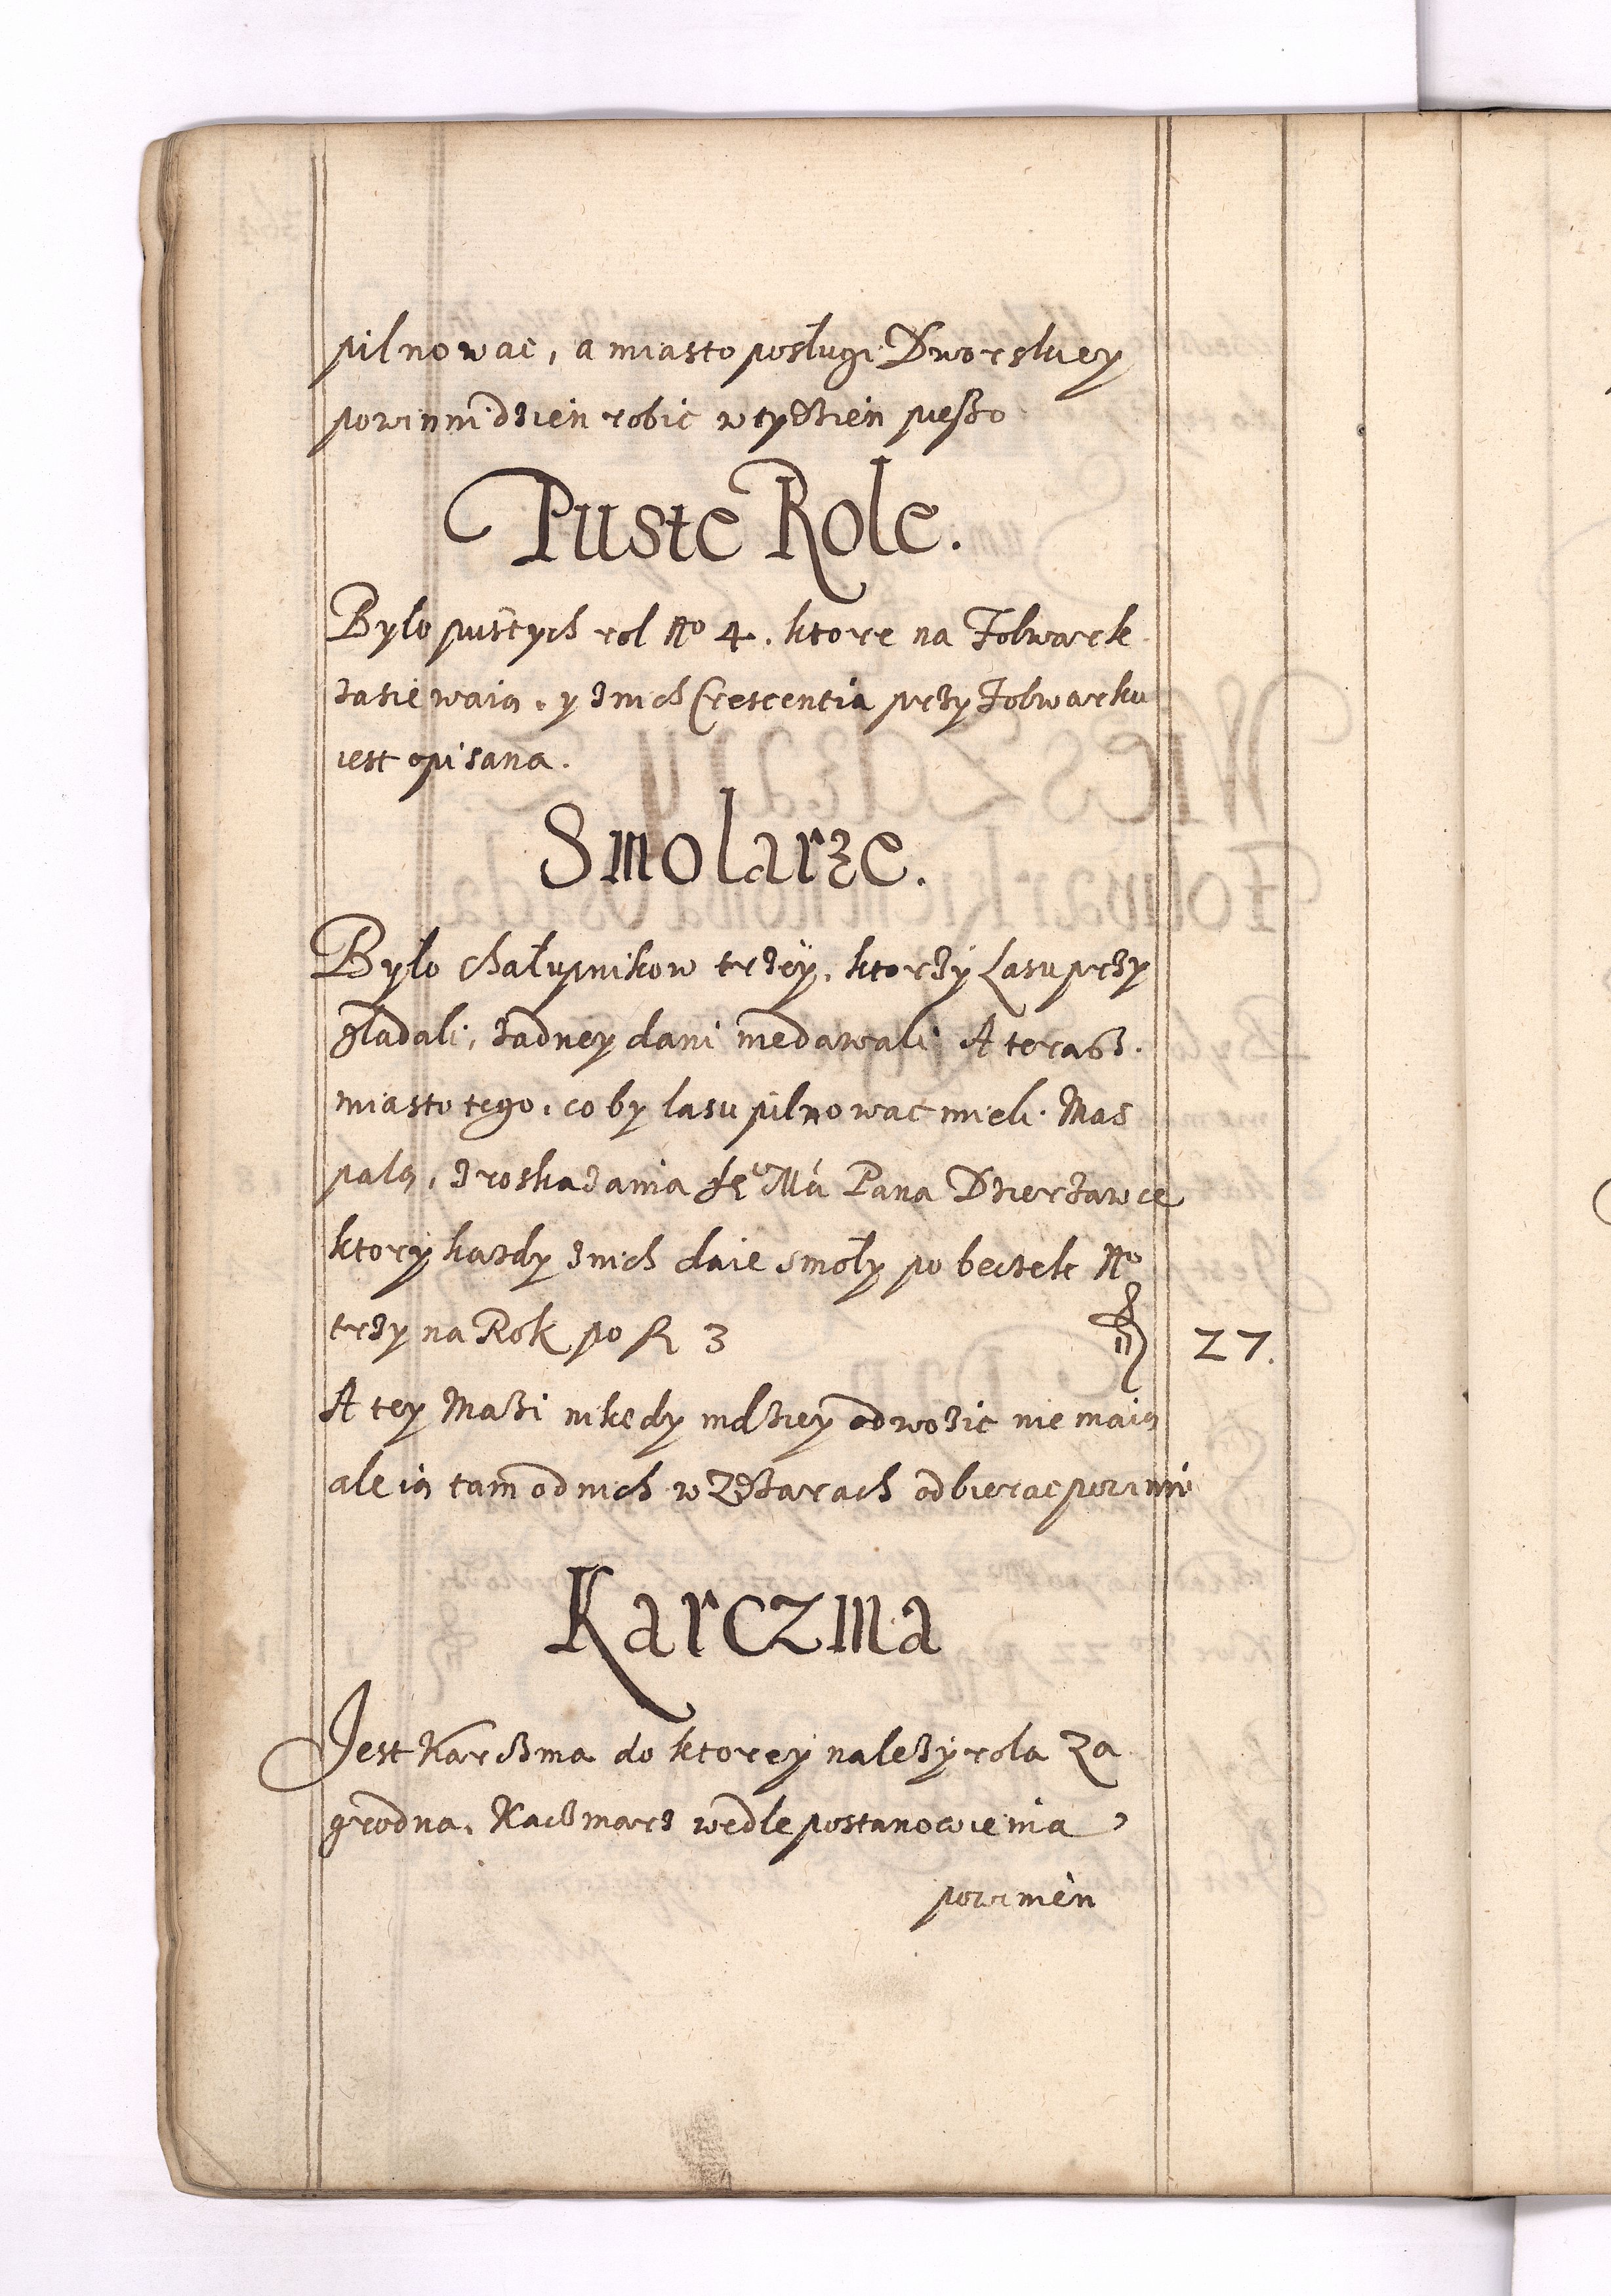 pilnowac, a miasto posługi Dworskiey
powinni dzień robić w tydzień pieszo
Puste Role.
Było pustych rol No 4. ktore na Folwark
zasiewaią. y z nich Crescentia przy Folwarku
iest opisana.
Smolarze.
Było chałupnikow trzey, ktorzy Lasu przy
glądali, żadney dani niedawali. A terasz.
miasto tego, coby lasu pilnowac mieli. Mas
palą, z roskazania Je Mći Pana Dzierżawce
ktory każdy z nich daie smoły po beczek No
trzy na Rok po fl 3 fl 27.
A tey Mazi nikędy indziey odwozic nie maią
ale ią tam od nich w Zdzarach odbierac powinni
Karczma
Jest Karczma do ktorey należy rola Za
grodna. Kaczmarz wedle postanowienia
powinien